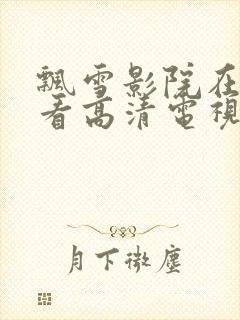 飄雪影院在
看高清電視
月下微塵